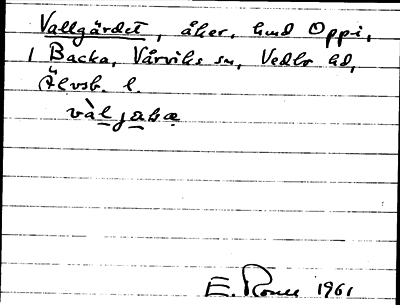 Vallgärdet, åker, hmd Oppi,
1 Backa, Vårviks sn, Vedbo hd,
Älvsb. l.
vàljaka
E. 1961